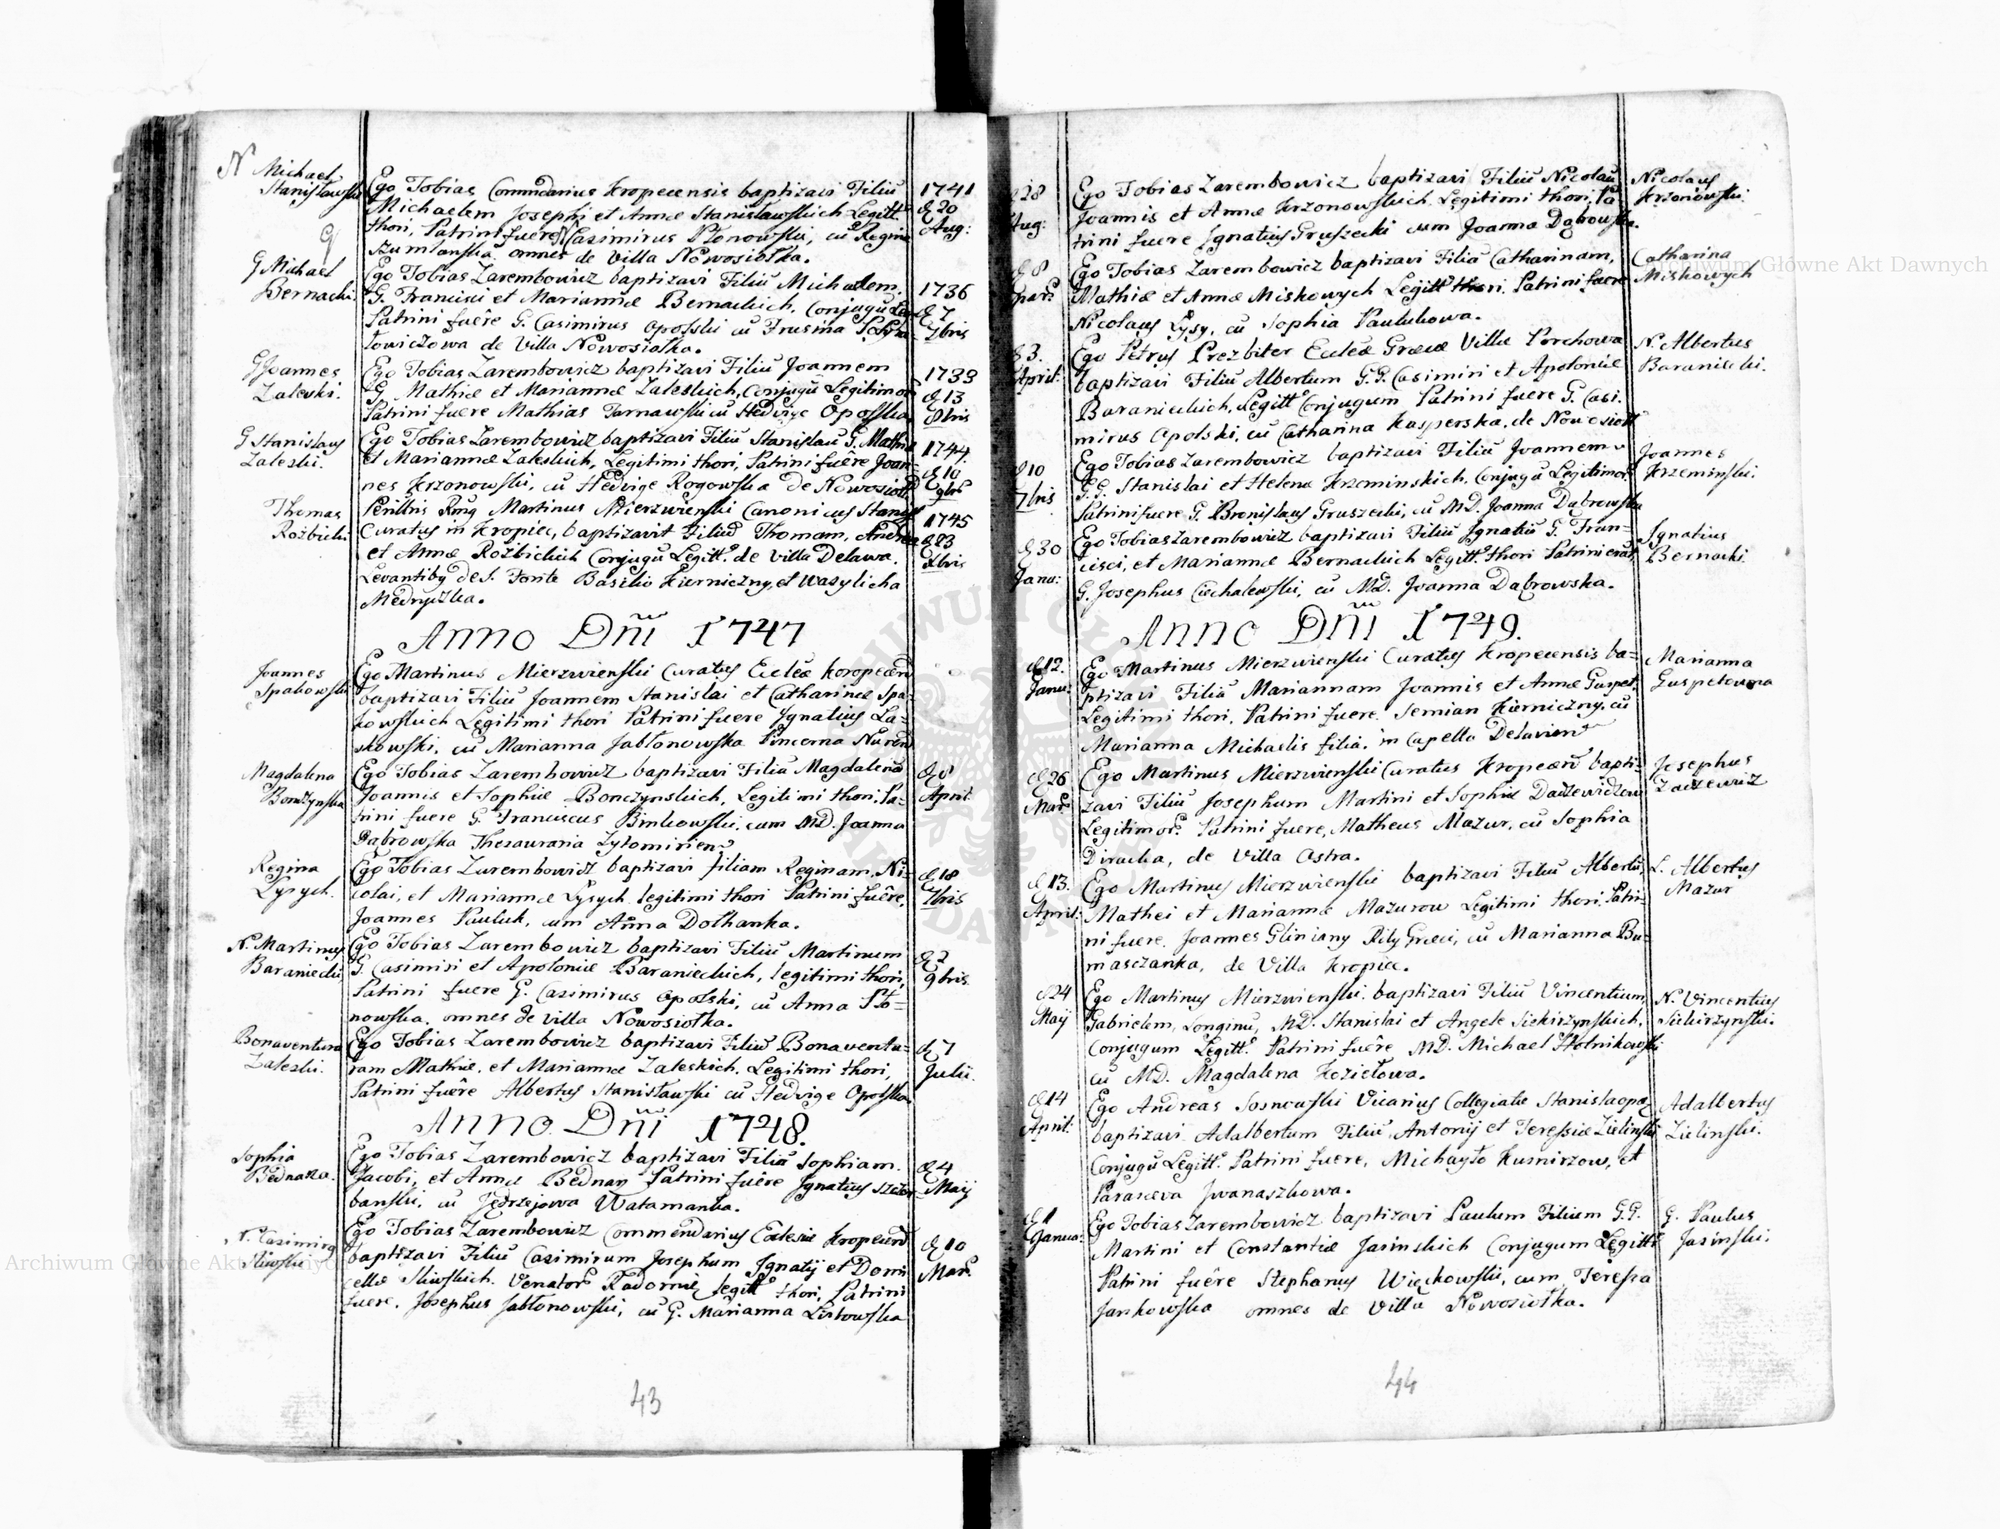 N Michael
Stanisławski
Ego Tobias Comendarius Kropecensis baptizavi Filiū
Michaelem Josephi et Annæ Stanisławskich Legitt
thori, Patrini fuere Casimirus Płonowski, cū Regina
Szumlanska omnes de Villa Nowosiołka.
1741
d 20
Aug:
G Michael
Bernacki
Ego Tobias Zarembowicz baptizavi Filiū Michaelem
G. Francisci et Mariannæ Bernackich, Conjugū
Patrini fuêre G. Casimirus Opolski cū Frusina
towiczowa de Villa Nowosiołka.
1736
d 7
7bris
G Joannes
Zaleski.
Ego Tobias Zarembowicz baptizavi Filiū Joannem
G. Mathiæ et Mariannæ Zaleskich, Conjugū Legitimor
Patrini fuêre Mathias Tarnawski cū Hedvige Opolska
1733
d 13
G Stanislaus
Zaleski.
Ego Tobias Zarembowicz baptizavi Filiū Stanislaū G. Mathiæ
et Mariannæ Zaleskich, Legitimi thori, Patrini fuêre Joan-
nes Krzonowski, cū Hedvige Rogowska de Nowosiołk
1744
d 10
Thomas
Rożbicki
Martinus Mierzwienski Canonicus
Curatus in Kropiec, baptizavit Filiū Thomam, Andreæ
et Annæ Rożbickich Conjugū Legitt. de Villa Delawa.
Levantiby de S. Fonte Basilio Kierniczny, et Wasylicha
Mędryszka.
1745
Anno Dni 1747
Joannes
Spakowski
Ego Martinus Mierzwienski Curatus Ecclæ Koropecen
baptizavi Filiū Joannem Stanislai et Catharinæ Spa-
kowskich Legitimi thori Patrini fuere Ignatius La-
skowski, cū Marianna Jabłonowska Pincerna Nuren
Magdalena
Bonczynska
Ego Tobias Zarembowicz baptizavi Filiā Magdalenā
Joannis et Sophiæ Bonczynskich, Legitimi thori, Pa-
trini fuere G. Franciscus Binkowski, cum MD. Joanna
Dąbrowska Thesauraria Zytomirien
d 8
April
Regina
Łysych.
Ego Tobias Zarembowicz baptizavi filiam Reginam, Ni-
colai, et Mariannæ Łysych legitimi thori Patrini fuêre,
Joannes Pauluk, cum Anna Dolhanka.
d 18
7bris
N. Martinus
Baraniecki
Ego Tobias Zarembowicz baptizavi Filiū Martinum
G. Casimiri et Apoloniæ Baranieckich, legitimi thori,
Patrini fuere G. Casimirus Opolski, cū Anna Pło-
nowska, omnes de villa Nowosiołka.
d 2
9bris
Bonaventura
Zaleski.
Ego Tobias Zarembowicz baptizavi Filiū Bonaventu-
ram Mathiæ, et Mariannæ Zaleskich, Legitimi thori,
Patrini fuêre Albertus Stanisławski cū Hedvige Opolska
d 7
Julii.
Anno Dni 1748.
Sophia
Bednarka.
Ego Tobias Zarembowicz baptizavi Filiā Sophiam.
Jacobi, et Annæ Bednarz Patrini fuêre Ignatius
banski, cū Jędrzejowa Watamanka.
d 4
Maij
N. Casimirus
Sliwski
Ego Tobias Zarembowicz Commendarius Ecclesiæ Kropecen
baptizavi Filiū Casimirum Josephum Ignatij et Domi
cellæ Sliwskich. Venator Radomiæ legitt thori, Patrini
fuere. Josephus Jabłonowski, cū G. Marianna Listowska
d 10
Mar.
43
d 28
Aug:
Ego Tobias Zarembowicz baptizavi Filiū Nicolaū
Joannis et Annæ Krzonowskich, Legitimi thori, Pa
trini fuere Ignatius Gruszecki cum Joanna Dąbrowska.
Nicolaus
Krzonowski.
d 8
Ego Tobias Zarembowicz baptizavi Filiā Catharinam,
Mathiæ et Annæ Miskowych Legitt thori. Patrini fuere
Nicolaus Łysy, cū Sophia Paulukowa.
Catharina
Miskowych
d 3.
April:
Ego Petrus Prezbiter Ecclæ Græcæ Villæ Porchowa
baptizavi Filiū Albertum G.G. Casimiri et Apoloniæ
Baranieckich, Legitt Conjugum Patrini fuere G. Casi-
mirus Opolski, cū Catharina Kasperska, de Nowosioł
N. Albertus
Baraniecki.
d 10
7bris
Ego Tobias Zarembowicz baptizavi Filiū Joannem
G.G. Stanislai et Helenæ Krzeminskich, Conjugū Legitimor
Patrini fuere G. Bronislaus Gruszecki, cū MD. Joanna Dąbrowska
Joannes
Krzeminski.
d 30
Janu:
Ego Tobias Zarembowicz baptizavi Filiū Ignatiū G. Fran-
cisci, et Mariannæ Bernackich Legitt thori Patrini erāt
G. Josephus Ciechalewski, cū MD. Joanna Dąbrowska.
Ignatius
Bernacki.
Anno Dni 1749.
d 12.
Janu:
Ego Martinus Mierzwienski Curatus Kropecensis ba-
ptizavi Filiā Mariannam Joannis et Annæ Guspet.
Legitimi thori, Patrini fuere. Semian Kierniczny, cū
Marianna Michaelis filia. in Capella Delavien
Marianna
Guspetowna
d 26
Mar.
Ego Martinus Mierzwienski Curatus Kropecen bapti-
zavi Filiū Josephum Martini et Sophiæ
Legitimor. Patrini fuere, Matheus Mazur, cū Sophia
Diracka, de Villa Ostra.
Josephus
d 13.
April:
Ego Martinus Mierzwienski baptizavi Filiū Albertū,
Mathei et Mariannæ Mazurow Legitimi thori, Patri-
ni fuere. Joannes Gliniany Rity Græci, cū Marianna Bu-
masczanka, de Villa Kropiec.
L. Albertus
Mazur
d 24
Maij
Ego Martinus Mierzwienski, baptizavi Filiū Vincentium,
Gabrielem, Longinū, MD. Stanislai et Angelæ Siekirzynskich,
Conjugum Legitt. Patrini fuêre MD. Michael Stolnikowski
cū MD. Magdalena Kozietowa.
N. Vincentius
Siekirzynski.
d 14
April:
Ego Andreas Sosnowski Vicarius Collegiatæ Stanislaopo
baptizavi Adalbertum Filiū Antonij et Teressiæ Zielinski
Conjugū Legitt. Patrini fuere, Michayło Kusnirzow, et
Parasceva Iwanaszkowa.
Adalbertus
Zielinski.
d 11
Janua:
Ego Tobias Zarembowicz baptizavi Paulum Filium G.G.
Martini et Constantiæ Jasinskich Conjugum Legitt
Patrini fuêre Stephanus Więckowski, cum Teressa
Jankowska omnes de Villa Nowosiołka.
G. Paulus
Jasinski.
44
Archiwum Główne Akt Dawnych
Archiwum Główne Akt Dawnych